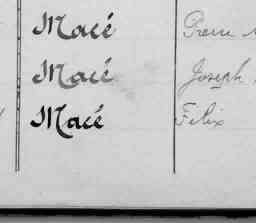 Macé Pierre
Macé Joseph
Macé Felix